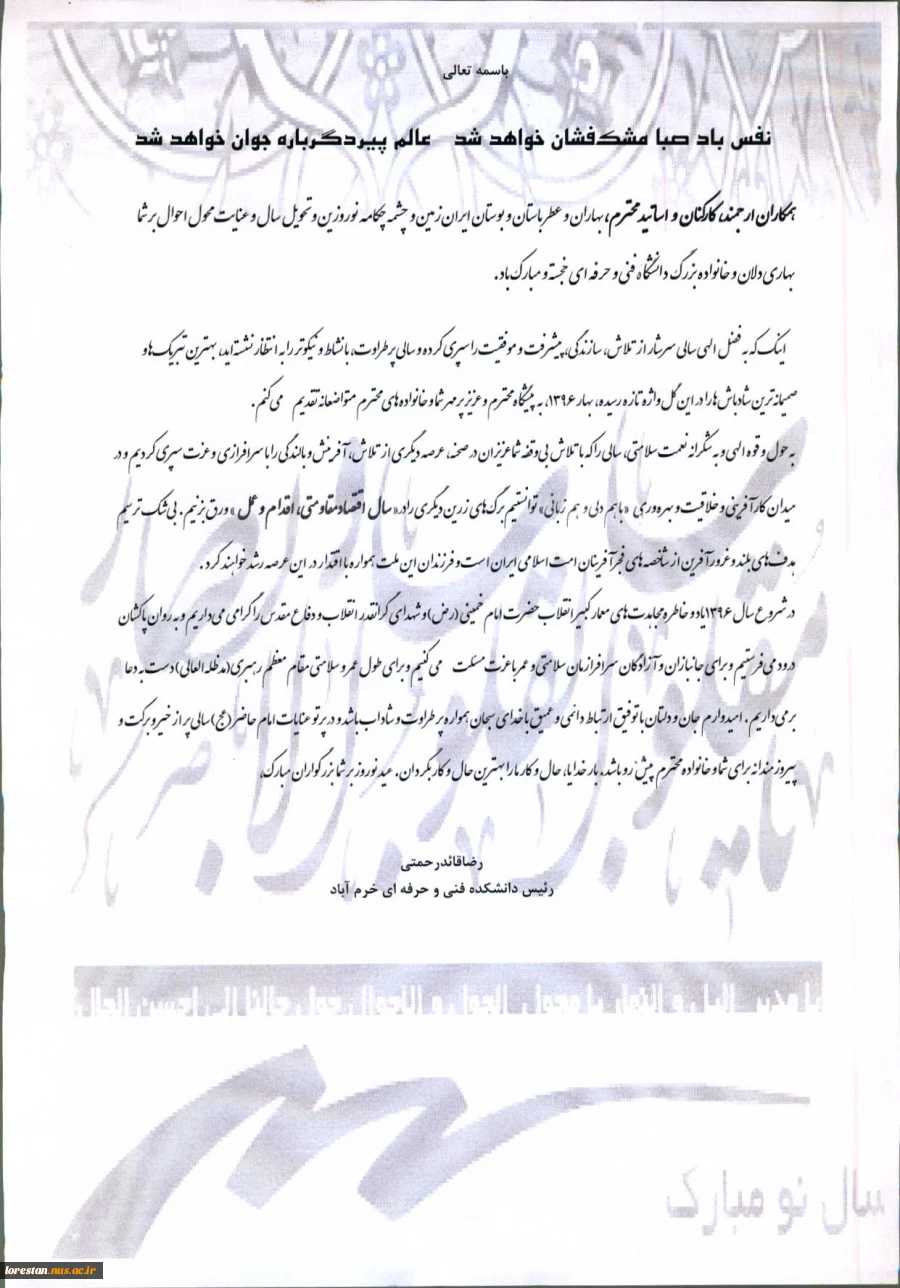 باسمه تعالی
نفس باد صبا مشک‌فشان خواهد شد   عالم پیر دگرباره جوان خواهد شد
همکاران ارجمند، کارکنان و اساتید محترم، بهاران و عطر باستان و بوستان ایران زمین و چشمه چکامه نوروزین و تحویل سال و عنایت محول احوال بر شما
بهاری دلان و خانواده بزرگ دانشگاه فنی و حرفه ای خجسته و مبارک باد.
اینک که به فضل الهی سالی سرشار از تلاش، سازندگی، پیشرفت و موفقیت را سپری کرده و سالی پر طراوت، با نشاط و نیکوتر را به انتظار نشسته اید، بهترین تبریک ها و
صمیمانه ترین شادباش ها را در این گل واژه تازه رسیده، بهار ۱۳۹۶، به پیشگاه محترم و عزیز پر مهر شما و خانواده های محترم متواضعانه تقدیم می کنم.
به حول و قوه الهی و به شکرانه نعمت سلامتی، سالی را که با تلاش بی وقفه شما عزیزان در صحنه، عرصه دیگری از تلاش، آفرینش و بالندگی را با سرافرازی و عزت سپری کردیم و در
میدان کارآفرینی و خلاقیت و بهره وری «با هم دلی و هم زبانی» توانستیم برگ های زرین دیگری را در «سال اقتصاد مقاومتی، اقدام و عمل» ورق بزنیم. بی شک ترسیم
هدف های بلند و غرورآفرین از شاخصه های فجرآفرینان امت اسلامی ایران است و فرزندان این ملت همواره با اقتدار در این عرصه رشد خواهند کرد.
در شروع سال ۱۳۹۶ یاد و خاطره مجاهدت های معمار کبیر انقلاب حضرت امام خمینی (رض) و شهدای گرانقدر انقلاب و دفاع مقدس را گرامی می داریم و به روان پاکشان
درود می فرستیم و برای جانبازان و آزادگان سرافرازمان سلامتی و عمر با عزت مسئلت می کنیم و برای طول عمر و سلامتی مقام معظم رهبری (مدظله العالی) دست به دعا
بر می داریم. امیدوارم جان و دلتان با توفیق ارتباط دائمی و عمیق با خدای سبحان همواره پر طراوت و شاداب باشد و در پرتو عنایات امام حاضر (عج) سالی پر از خیر و برکت و
پیروزمندانه برای شما و خانواده محترم پیش رو باشد. بار خدایا، حال و کار ما را بهترین حال و کار بگردان. عید نوروز بر شما بزرگواران مبارک.
رضا قائدرحمتی
رئیس دانشکده فنی و حرفه ای خرم آباد
یا مدبر اللیل و النهار یا محول الحول و الاحوال حول حالنا الی احسن الحال
سال نو مبارک
lorestan.nus.ac.ir